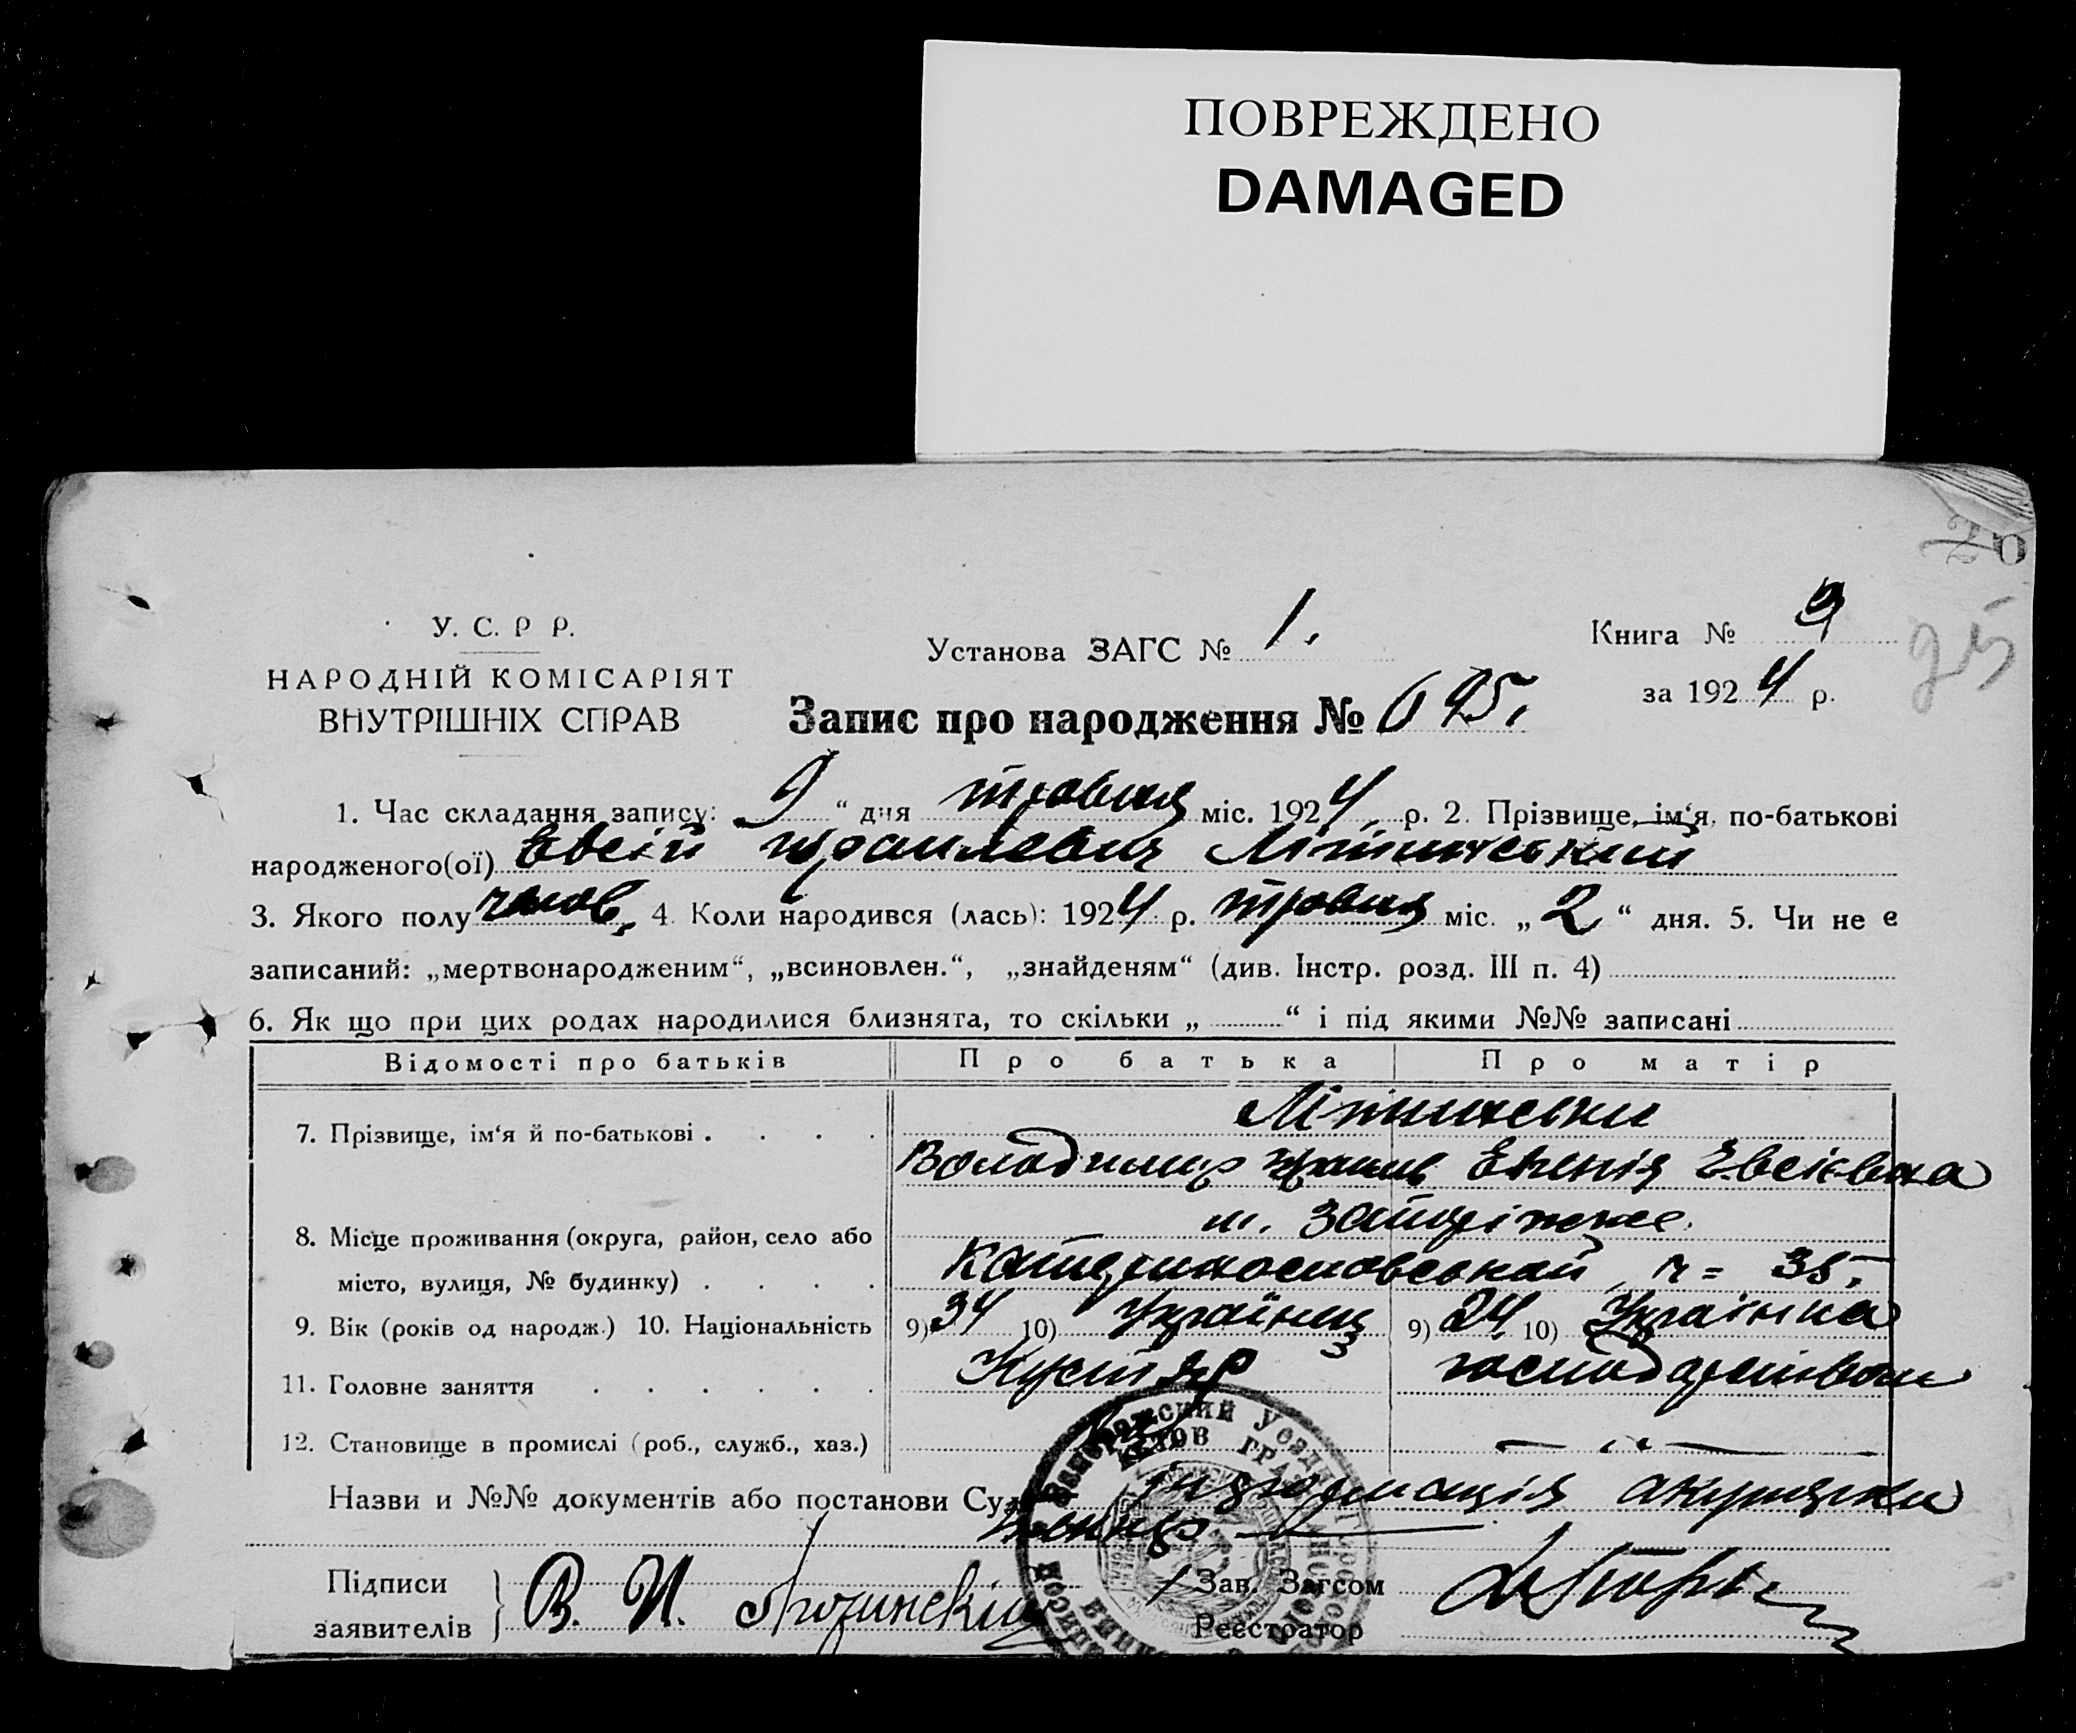 ПОВРЕЖДЕНО
DAMAGED
20
25
У. С. Р Р.
НАРОДНІЙ КОМІСАРІЯТ
ВНУТРІШНІХ СПРАВ
Установа ЗАГС № 1.
Книга № 9
за 1924 р.
Запис про народження № 695.
1. Час складання запису: 9 “ дня травня міс. 1924 р. 2. Прізвище, ім‘я, по-батькові
народженого(ої) Евсій
3. Якого полу чолов. 4. Коли народився (лась): 1924 р. травня міс. „ 2 “ дня. 5. Чи не є
записаний: „мертвонародженим“, „всиновлен.“, „знайденям“ (див. Інстр. розд. III п. 4)
6. Як що при цих родах народилися близнята, то скільки „ “ і під якими №№ записані
Відомості про батьків Про батька Про матір
7. Прізвище, ім‘я й по-батькові
Володимир Евсієвна
8. Місце проживання (округа, район, село або м. Запоріжжє.
місто, вулиця, № будинку) ч = 35.
9. Вік (років од народж.) 10. Національність 9) 34 10) Українец 9) 24 10) Українка
11. Головне заняття Кустар господарством
12. Становище в промислі (роб., служб., хаз.)
Назви и №№ документів або постанови Суд інформація акушерки
Підписи
заявителів В. И.
Зав. Загсом
Реєстратор